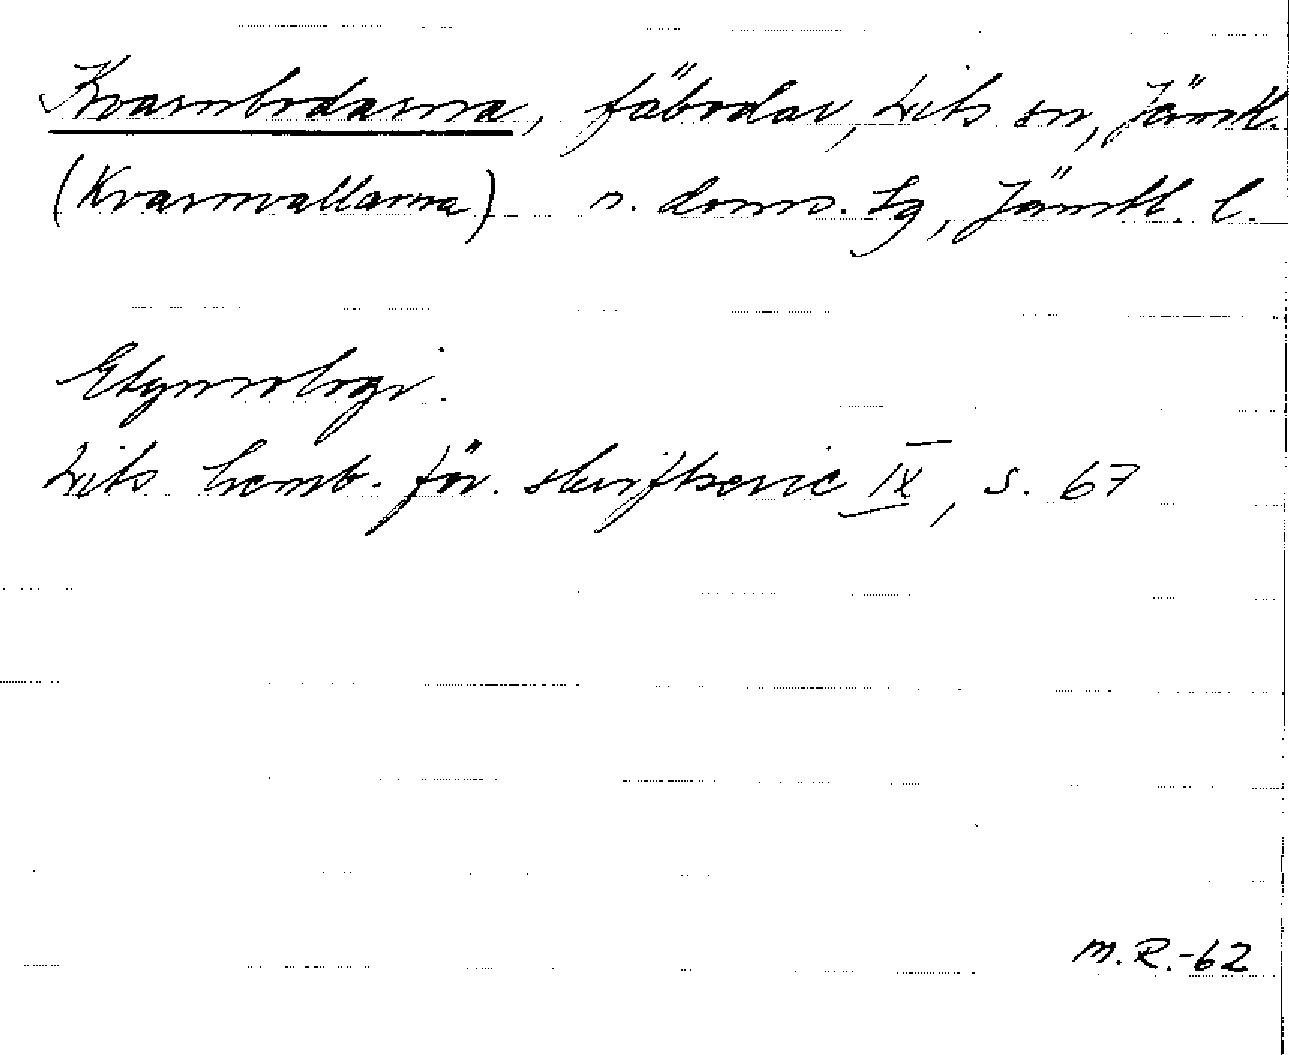 Kvarnbodarna, fäbodar, Lits sn, Jämtl.
(Kvarnvallarna) n. doms. tg, Jämtl. l.
Etymologi.
Lits hemb. för. skriftserie IX, s. 67
M.R.-62